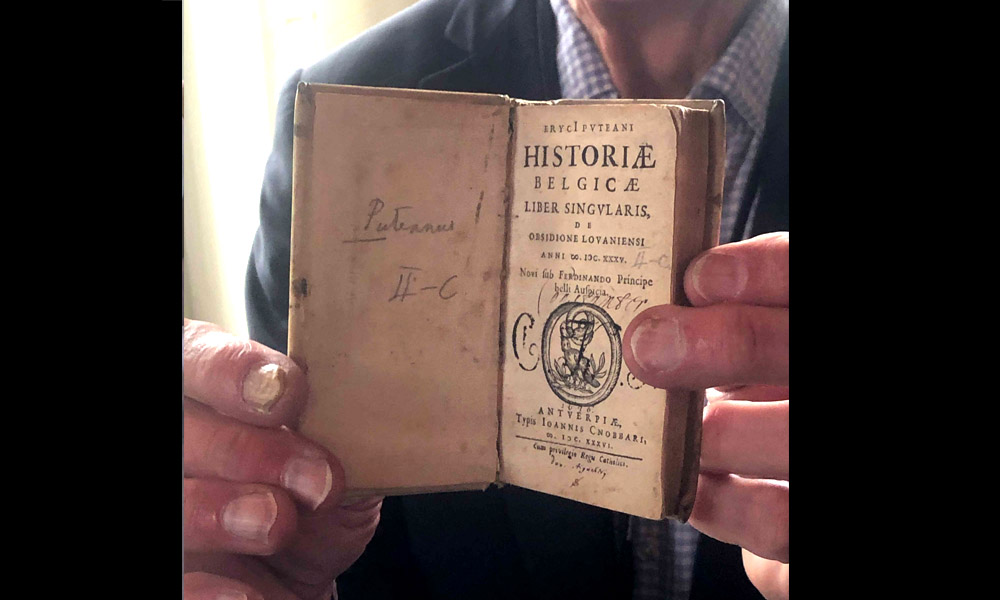 Puteanus
II-C
ERYCI PVTEANI
HISTORIÆ
BELGICÆ
LIBER SINGVLARIS,
DE
OBSIDIONE LOVANIENSI
ANNI ∞. IↃC. XXXV. II-C
Novi sub FERDINANDO Principe
belli Auspicia.
ANTVERPIÆ,
Typis IOANNIS CNOBBARI,
∞. IↃC. XXXVI.
Cum privilegio Regis Catholici.